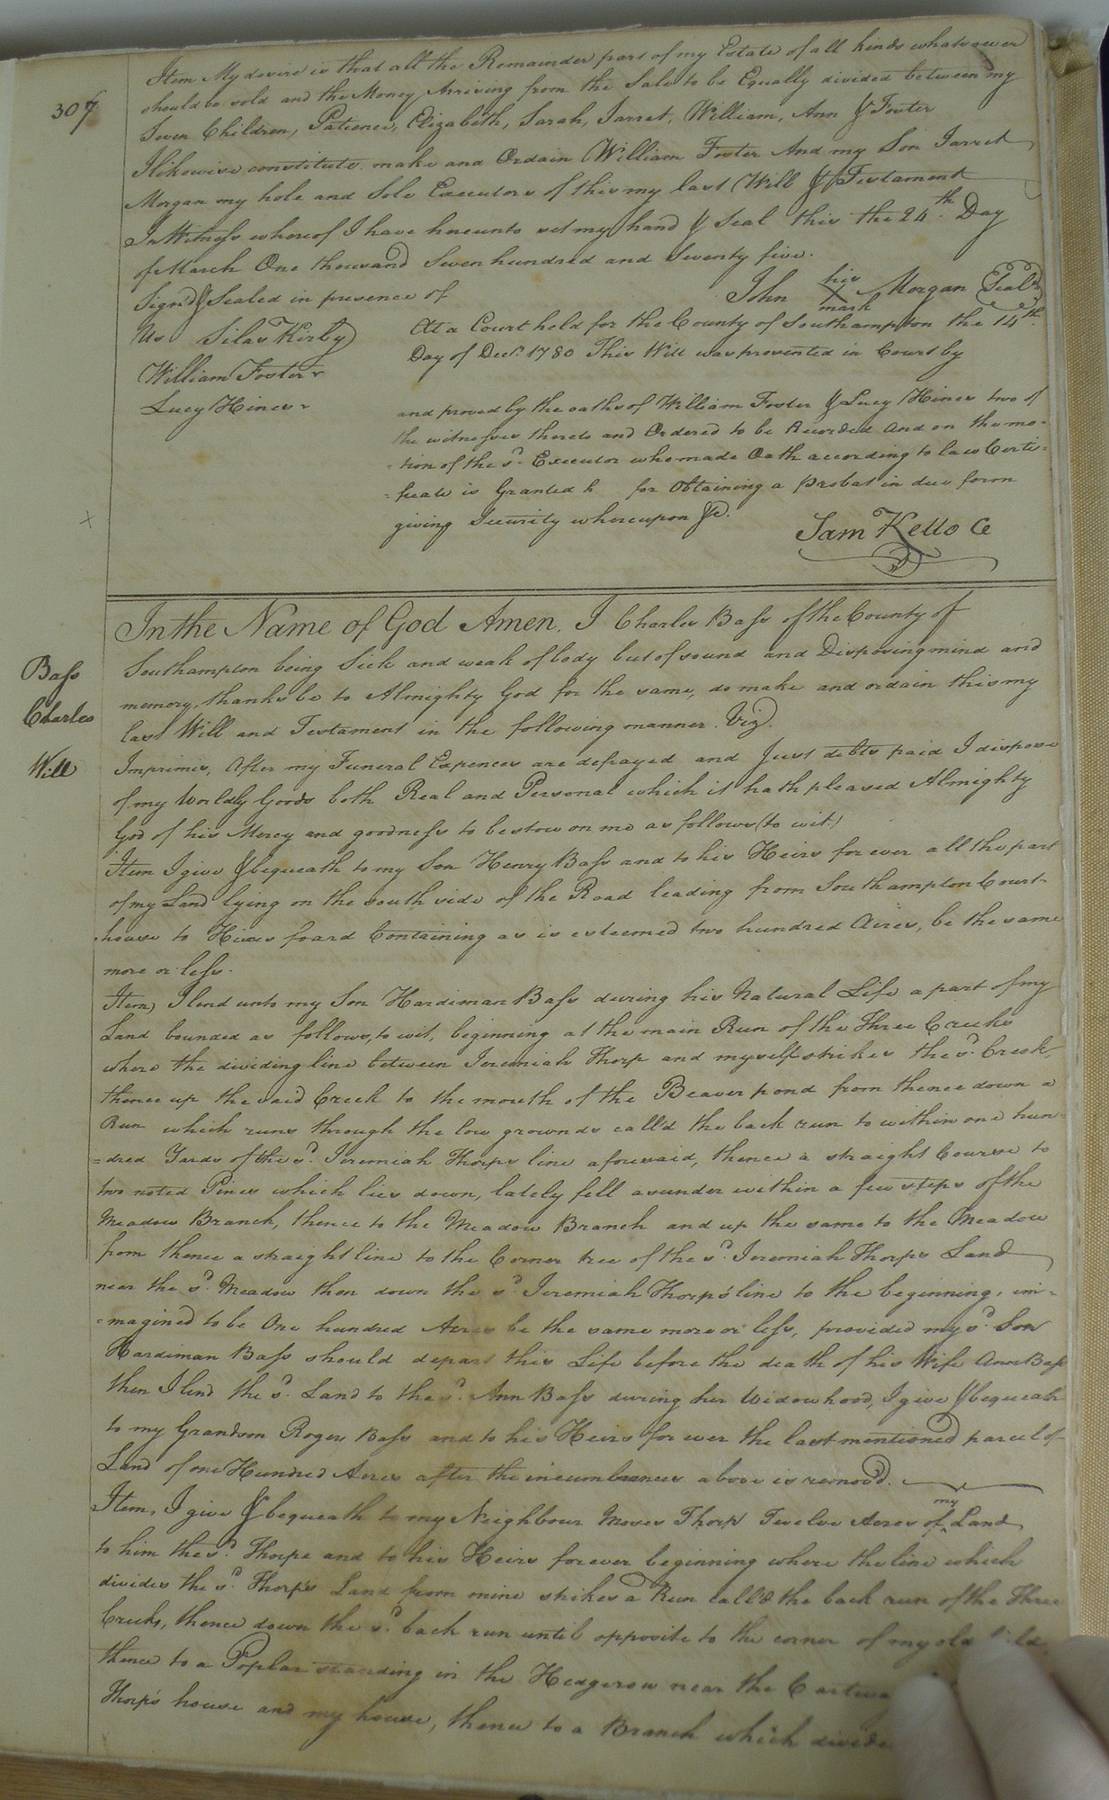 307
Item My desire is that all the Remainder part of my Estate of all kinds whatsoever
should be sold and the Money Arriving from the Sale to be Equally divided between my
Seven Children, Patience, Elizabeth, Sarah, Jarret, William, Ann & Foster
I likewise constitute make and Ordain William Foster And my Son Jarret
Morgan my hole and Sole Executors of this my last Will & Testament
In Witness whereof I have hereunto set my hand & Seal this the 24th Day
of March One thousand Seven hundred and Seventy five.
Sign'd & Sealed in presence of
John his X mark Morgan Seal'd
Us Silas Kirby
William Foster
Lucy Hines
At a Court held for the County of Southampton the 14th
Day of Decr. 1780 This Will was presented in Court by
and proved by the oaths of William Foster & Lucy Hines two of
the witnesses thereto and Ordered to be Recorded and on the mo-
-tion of the sd. Executor who made Oath according to law Certi-
-ficate is Granted h for Obtaining a Probat in due form
giving Security whereupon &c.
Sam Kello CC
Bass
Charles
Will
In the Name of God Amen. I Charles Bass of the County of
Southampton being Sick and weak of body but of sound and Disposing mind and
memory, thanks be to Almighty God for the same, do make and ordain this my
last Will and Testament in the following manner. Viz.
Imprimis, After my Funeral Expences are defrayed and Just debts paid I dispose
of my Worldly Goods both Real and Personal which it hath pleased Almighty
God of his Mercy and goodness to bestow on me as follows (to wit)
Item I give & bequeath to my Son Henry Bass and to his Heirs for ever all the part
of my Land lying on the south side of the Road leading from Southampton Court-
house to Hixes foard Containing as is esteemed two hundred Acres, be the same
more or less.
Item, I lend unto my Son Hardiman Bass during his Natural Life a part of my
Land bounded as follows, to wit, beginning at the main Run of the Three Creeks
where the dividing line between Jeremiah Thorp and myself strikes the sd. Creek
thence up the said Creek to the mouth of the Beaver pond from thence down a
Run which runs through the low grownds call'd the back run to within one hun-
=dred Yards of the sd. Jeremiah Thorps line aforesaid, thence a straight Course to
two noted Pines which lies down, lately fell asunder within a few steps of the
Meadow Branch, thence to the Meadow Branch and up the same to the Meadow
from thence a straight line to the Corner tree of the sd. Jeremiah Thorps Land
near the sd. Meadow then down the sd. Jeremiah Thorp's line to the beginning, im-
-magined to be One hundred Acres be the same more or less, provided my sd. Son
Hardiman Bass should depart this Life before the death of his Wife Ann Bass
then I lend the sd. Land to the sd. Ann Bass during her Widowhood, I give & bequeath
to my Grandson Roger Bass and to his Heirs for ever the last mentioned parcel of
Land of one Hundred Acres after the incumbrances above is remov'd.
Item, I give & bequeath to my Neighbour Moses Thorp Twelve Acres of my Land
to him the sd. Thorpe and to his Heirs forever beginning where the line which
divides the sd. Thorps Land from mine strikes a Run call'd the back run of the Three
Creeks, thence down the sd. back run until opposite to the corner of my old
thence to a Poplar standing in the Hedgerow near the
Thorp's house and my house, thence to a Branch which